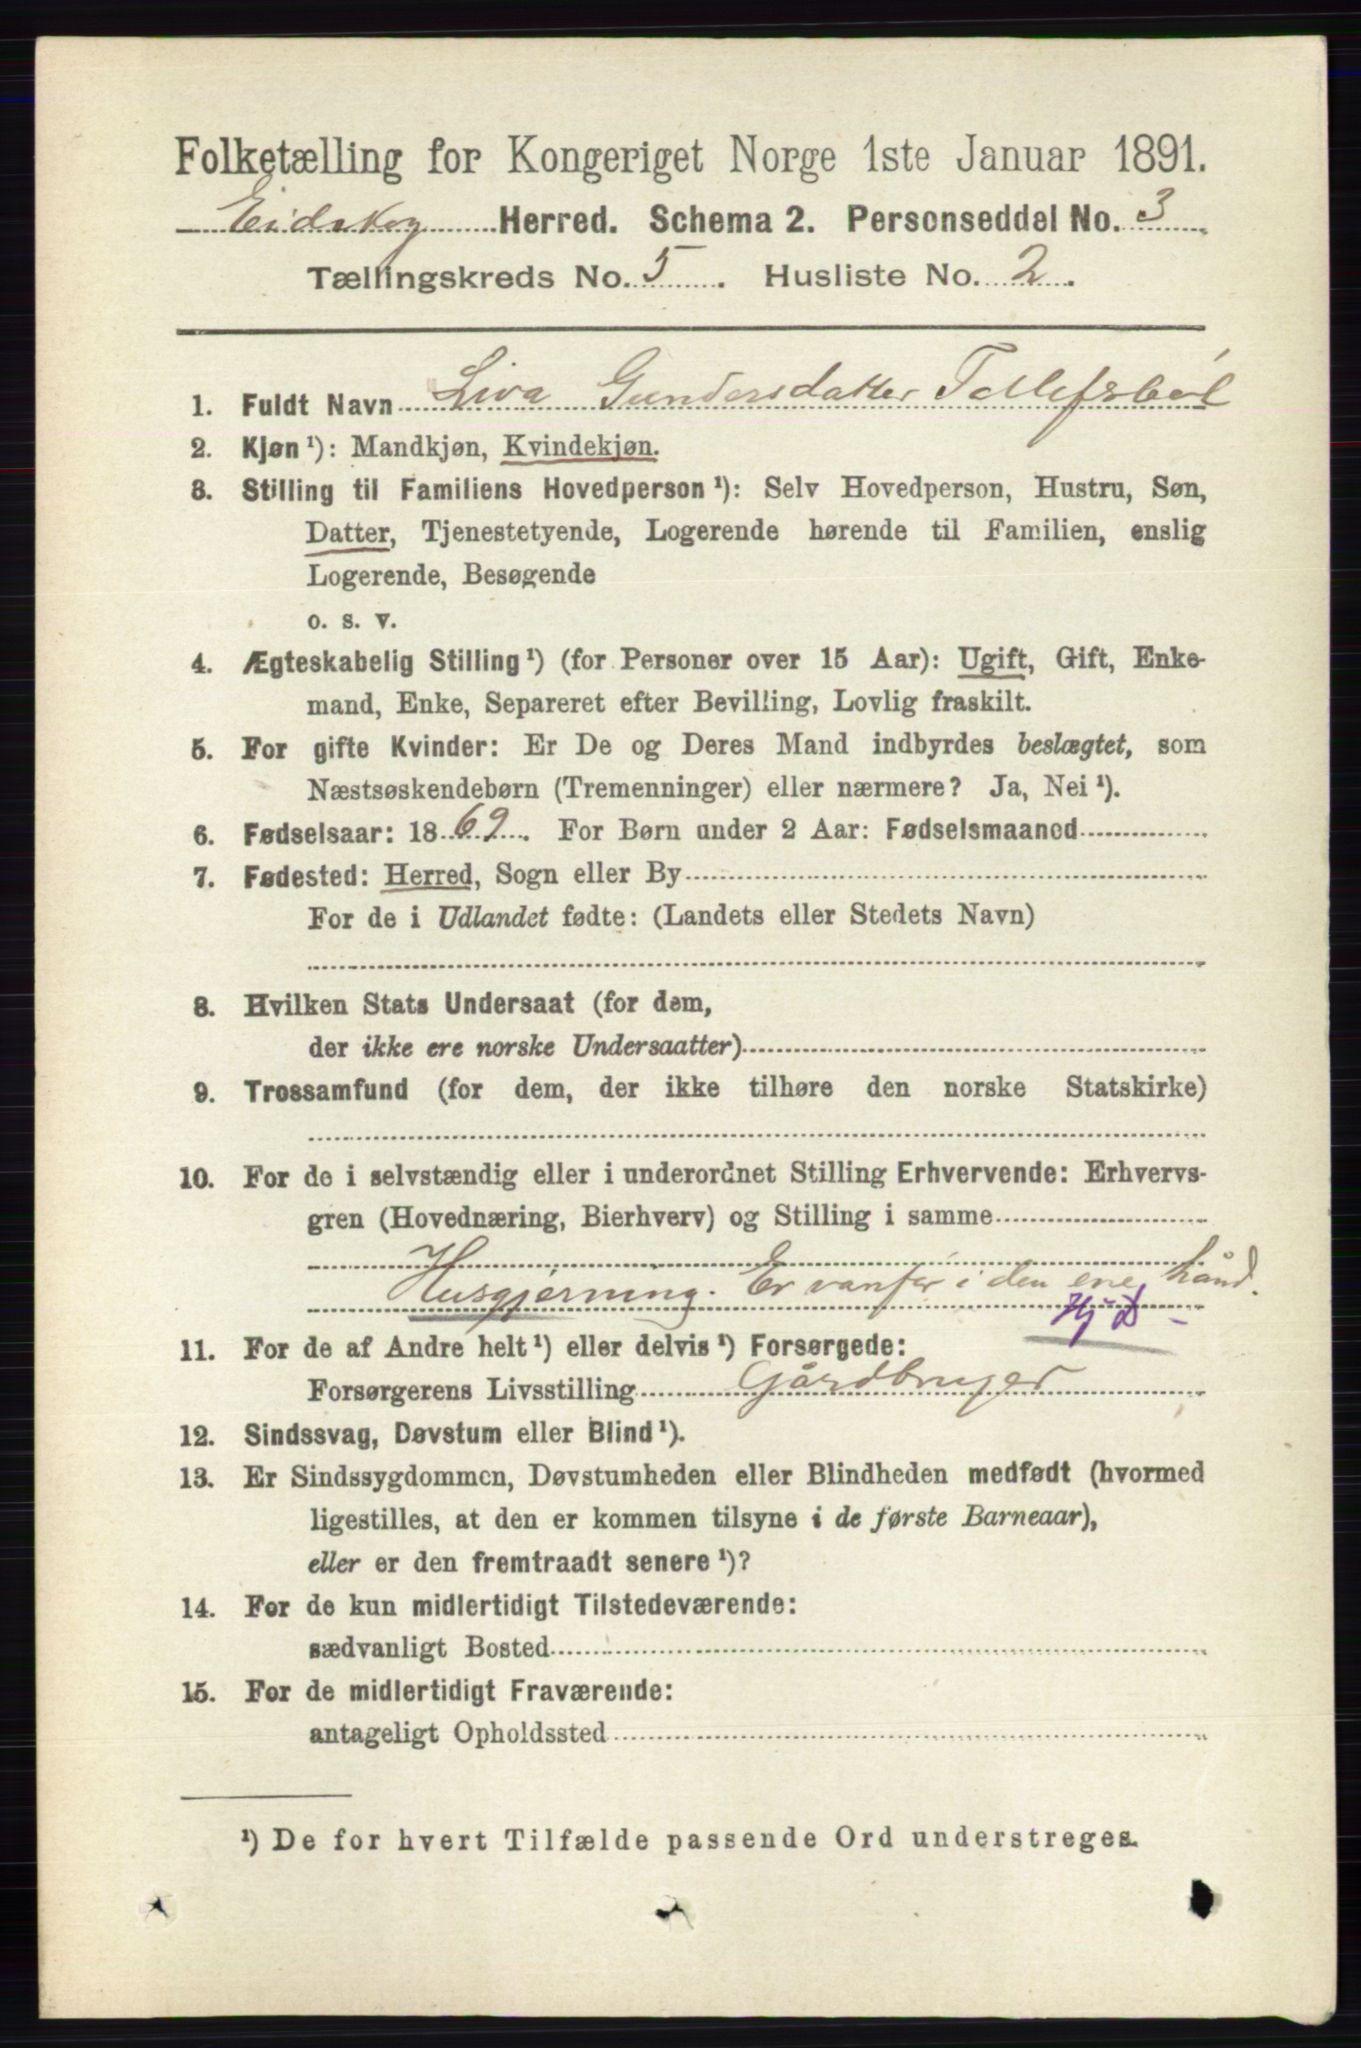 Folketælling for Kongeriget Norge 1ste Januar 1891.
Eidskog Herred. Schema 2. Personseddel No. 3
Tællingskreds No. 5. Husliste No. 2.
1. Fuldt Navn Liva Gundersdatter Tollefsbøl
2. Kjøn ¹): Mandkjøn, Kvindekjøn.
3. Stilling til Familiens Hovedperson ¹): Selv Hovedperson, Hustru, Søn,
Datter, Tjenestetyende, Logerende hørende til Familien, enslig
Logerende, Besøgende
o. s. v.
4. Ægteskabelig Stilling ¹) (for Personer over 15 Aar): Ugift, Gift, Enke-
mand, Enke, Separeret efter Bevilling, Lovlig fraskilt.
5. For gifte Kvinder: Er De og Deres Mand indbyrdes beslægtet, som
Næstsøskendebørn (Tremenninger) eller nærmere? Ja, Nei ¹).
6. Fødselsaar: 1869. For Børn under 2 Aar: Fødselsmaaned
7. Fødested: Herred, Sogn eller By
For de i Udlandet fødte: (Landets eller Stedets Navn)
8. Hvilken Stats Undersaat (for dem,
der ikke ere norske Undersaatter)
9. Trossamfund (for dem, der ikke tilhøre den norske Statskirke)
10. For de i selvstændig eller i underordnet Stilling Erhvervende: Erhvervs-
gren (Hovednæring, Bierhverv) og Stilling i samme
Husgjerning. Er vanfør i den ene hånd.
Hj D -
11. For de af Andre helt ¹) eller delvis ¹) Forsørgede:
Forsørgerens Livsstilling Gårdbruger
12. Sindssvag, Døvstum eller Blind ¹).
13. Er Sindssygdommen, Døvstumheden eller Blindheden medfødt (hvormed
ligestilles, at den er kommen tilsyne i de første Barneaar),
eller er den fremtraadt senere ¹)?
14. For de kun midlertidigt Tilstedeværende:
sædvanligt Bosted
15. For de midlertidigt Fraværende:
antageligt Opholdssted
¹) De for hvert Tilfælde passende Ord understreges.